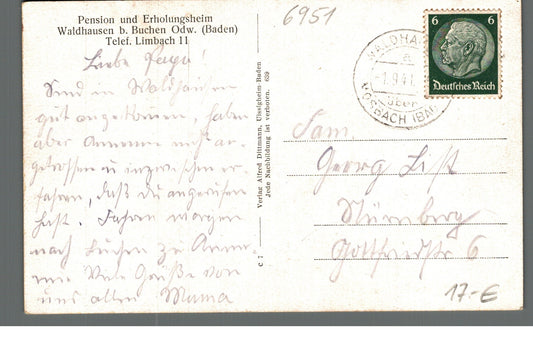 Pension und Erholungsheim
Waldhausen b. Buchen Odw. (Baden)
Telef. Limbach 11
6951
Liebe Papa!
Sind in Waldhausen
gut angekommen, haben
aber Annemie nicht an-
getroffen u inzwischen er-
fahren, daß Du angerufen
hast. Fahren morgen
nach Buchen zu Annemie
Viele Grüße von
uns allen Mama
Verlag Alfred Dittmann, Uissigheim-Baden 639
Jede Nachbildung ist verboten.
C 7
WALDHAUSEN
a
-1.9.41
über
MOSBACH (BADEN)
6
6
Deutsches Reich
Fam.
Georg List
Nürnberg
Gottfriedstr 6
17.-€